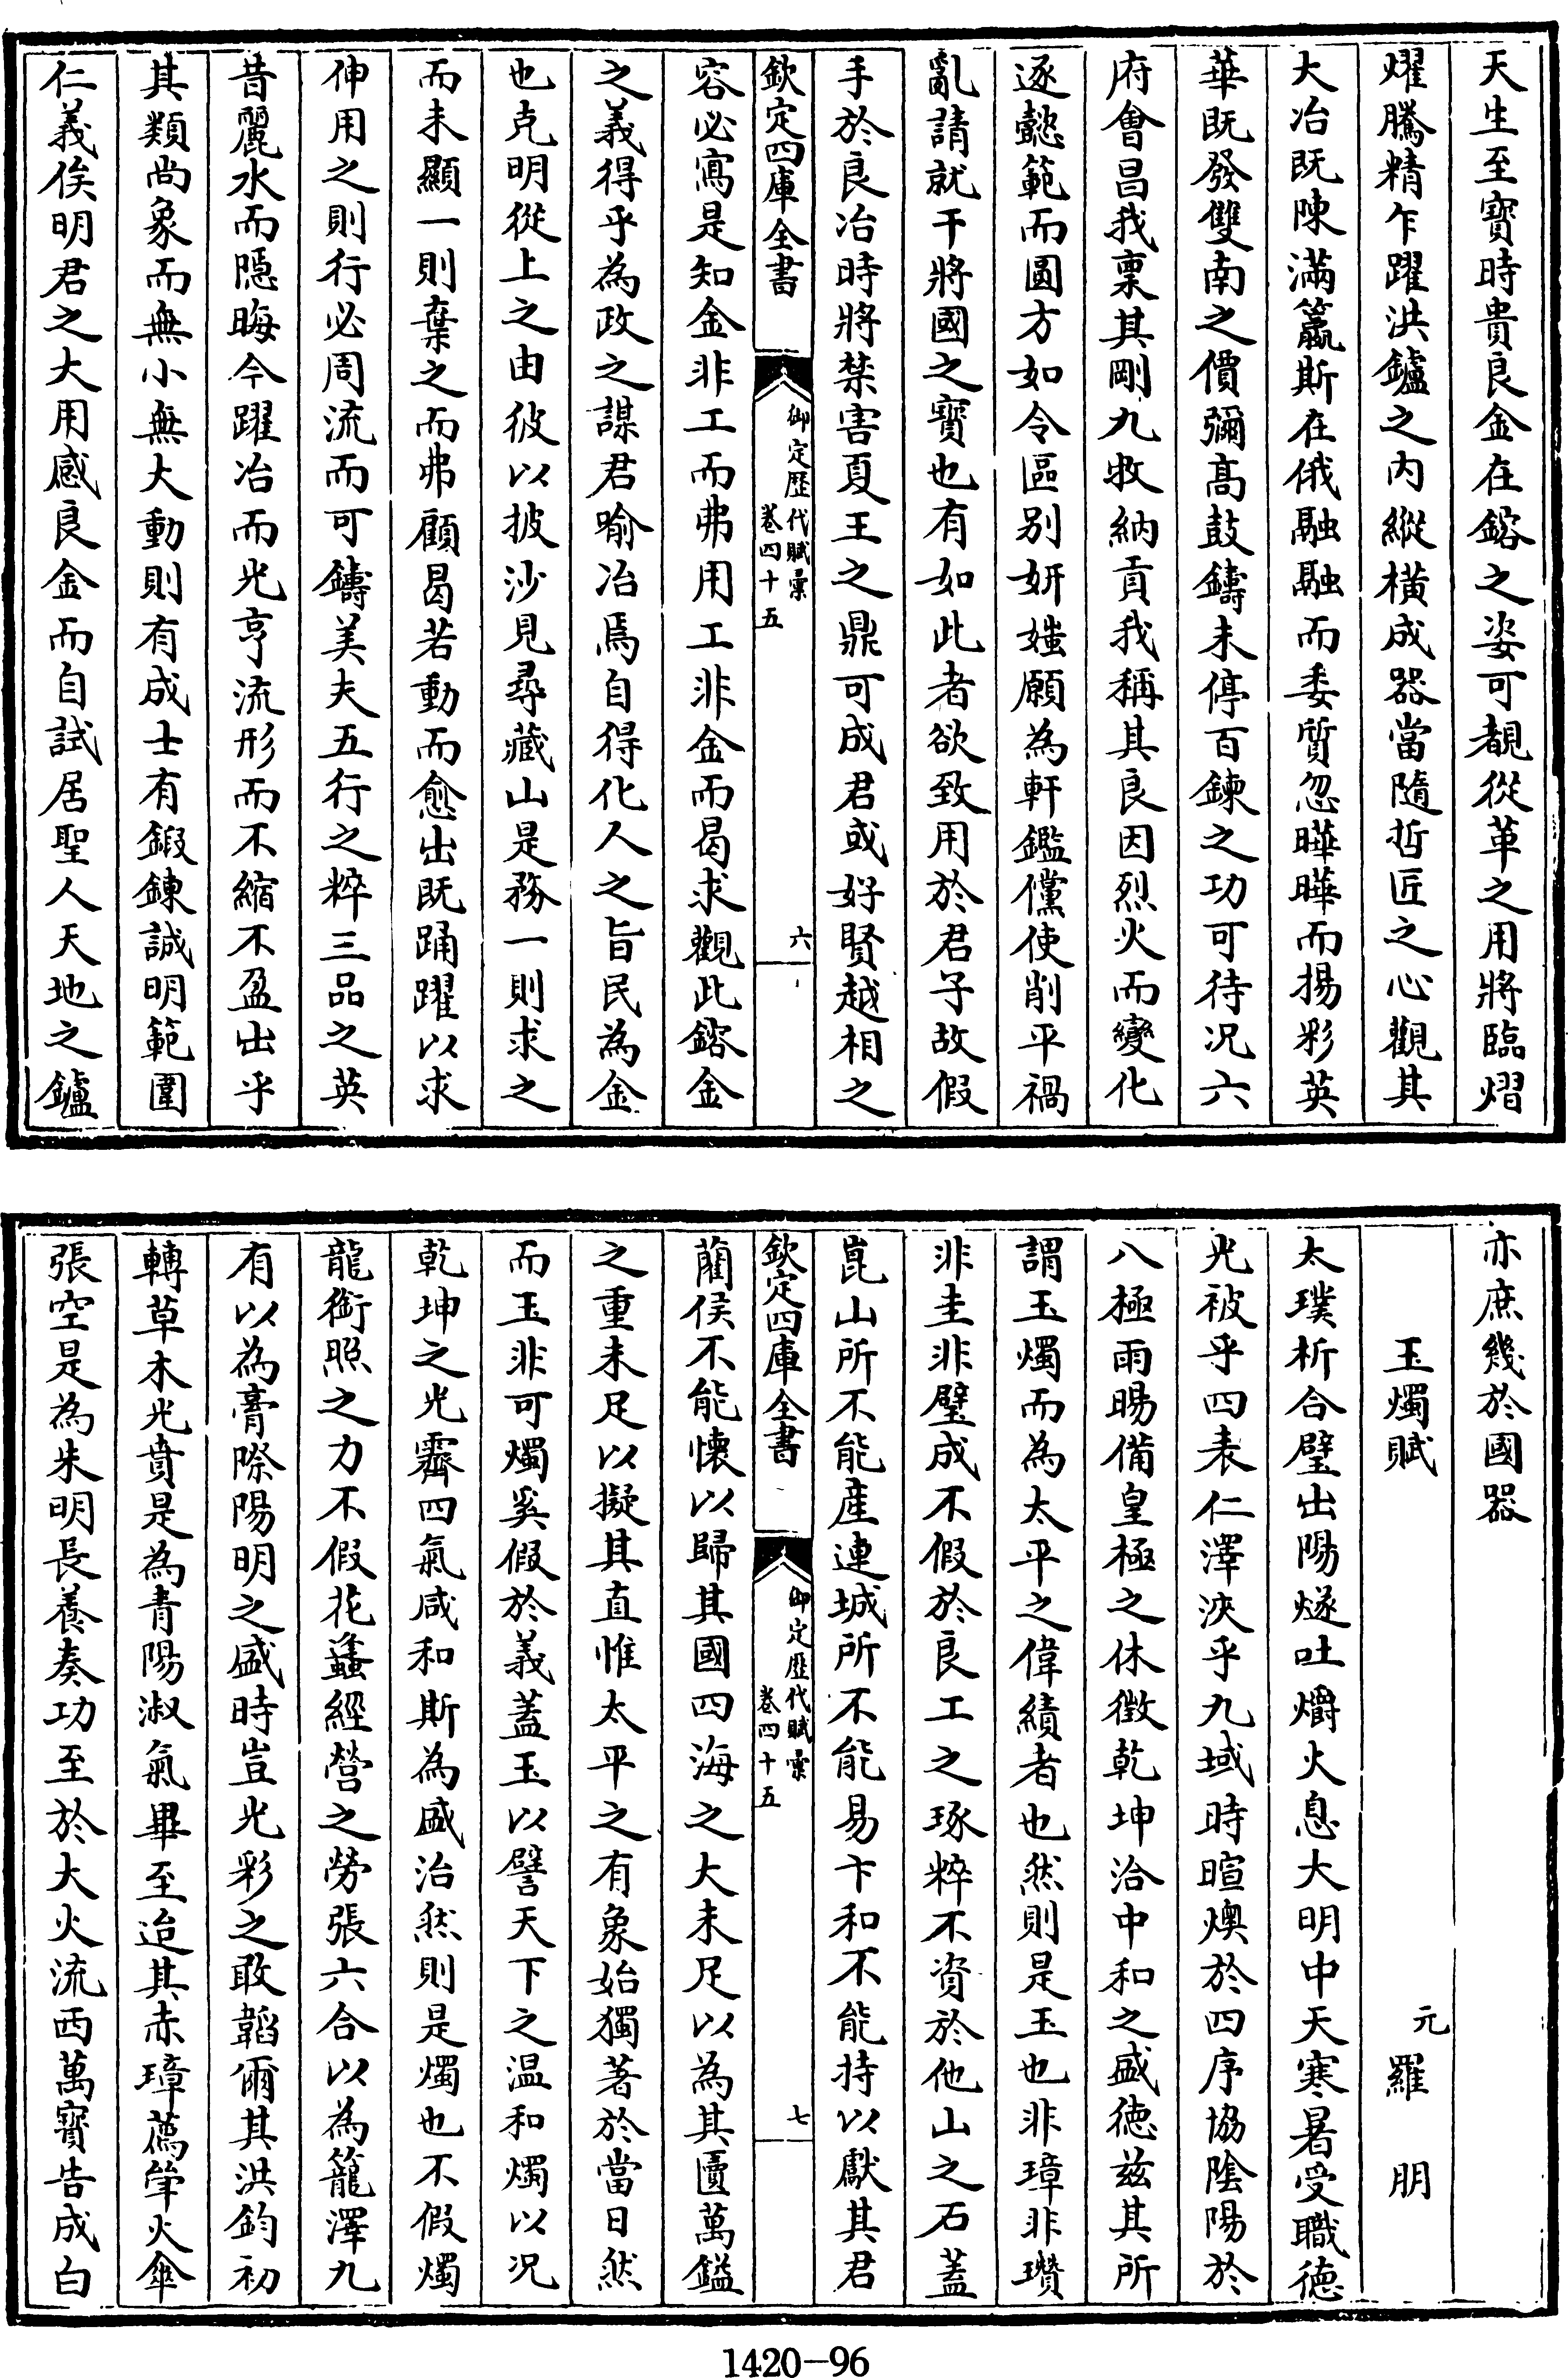 天生至寳時貴良金在鎔之姿可覩從革之用將臨熠
燿騰精乍躍洪鑪之内縱横成器當隨哲匠之心觀其
大冶既陳滿籯斯在俄融融而委質忽曄曄而揚彩英
華既發雙南之價彌髙鼓鑄未停百鍊之功可待况六
府㑹昌我稟其剛九牧納貢我稱其良因烈火而變化
逐懿範而圓方如令區别妍媸願為軒鑑儻使削平禍
亂請就干將國之寳也有如此者欲致用於君子故假
手於良冶時將禁害夏王之鼎可成君或好賢越相之
欽定四庫全書
御定歴代賦彙
卷四十五
六
容必寫是知金非工而弗用工非金而曷求觀此鎔金
之義得乎為政之謀君喻冶焉自得化人之旨民為金
也克明從上之由彼以披沙見尋藏山是務一則求之
而未顯一則棄之而弗顧曷若動而愈出既踊躍以求
伸用之則行必周流而可鑄美夫五行之粹三品之英
昔麗水而隠晦今躍冶而光亨流形而不縮不盈出乎
其類尚象而無小無大動則有成士有鍛鍊誠明範圍
仁義俟明君之大用感良金而自試居聖人天地之鑪
亦庶幾於國器
玉燭賦
元 羅朋
太璞析合璧出陽燧吐爝火息大明中天寒暑受職徳
光被乎四表仁澤浹乎九域時暄燠於四序協隂陽於
八極雨暘備皇極之休徴乾坤洽中和之盛徳兹其所
謂玉燭而為太平之偉績者也然則是玉也非璋非瓚
非圭非璧成不假於良工之琢粹不資於他山之石蓋
崑山所不能産連城所不能易卞和不能持以獻其君
欽定四庫全書
御定歴代賦彙
卷四十五
七
藺侯不能懐以歸其國四海之大未足以為其匵萬鎰
之重未足以擬其直惟太平之有象始獨著於當日然
而玉非可燭奚假於義蓋玉以譬天下之温和燭以况
乾坤之光霽四氣咸和斯為盛治然則是燭也不假燭
龍銜照之力不假花蠭經營之勞張六合以為籠澤九
有以為膏際陽明之盛時豈光彩之敢韜爾其洪鈞初
轉草木光賁是為青陽淑氣畢至迨其赤璋薦篳火傘
張空是為朱明長養奏功至於大火流西萬寳告成白
1420-96